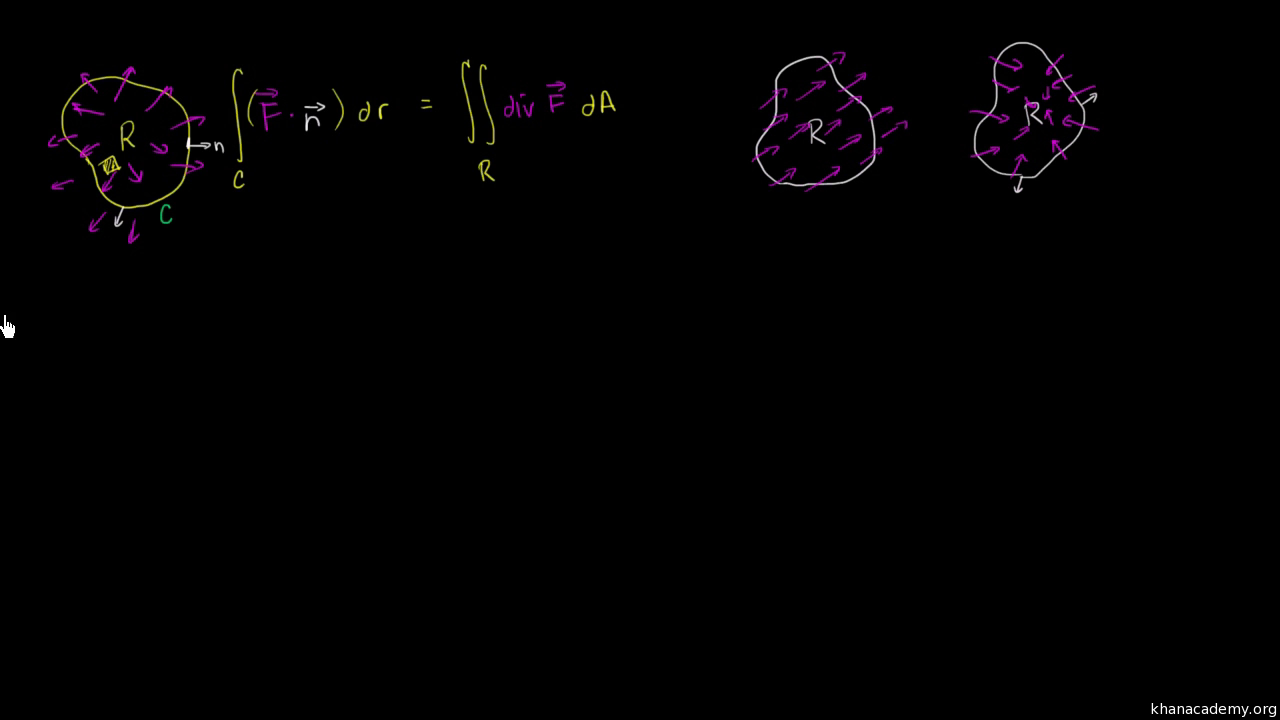 R n C
∫_C (F⃗ · n⃗) dr = ∬_R div F⃗ dA
R
R
khanacademy.org